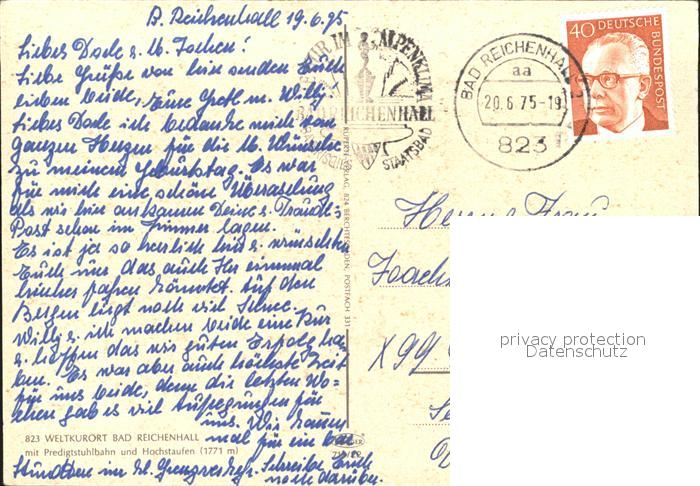 B. Reichenhall 19.6.75
Liebes Dorle u. lb. Jochen!
Liebe Grüße von hier senden Euch
lieben beide, Eure Gretl u. Willy
Liebes Dorle ich bedanke mich von
ganzen Herzen für die lb. Wünsche
zu meinem Geburtstag. Es war
für mich eine schöne Überraschung
als wir hier ankamen Deine u. Traudls
Post schon im Zimmer lagen.
Es ist ja so herrlich hier u. wünschte
Euch nur das auch Ihr einmal
hierher fahren könntet. Auf den
Bergen liegt noch viel Schnee.
Willy u. ich machen beide eine Kur
u. hoffen das wir guten Erfolg ha-
ben. Es war aber auch höchste Zeit
für uns beide, denn die letzten Wo-
chen gab es viel Aufregungen für
uns. Wir
mal für ein
Stunden im kl. Schreibe Euch
noch darüber.
823 WELTKURORT BAD REICHENHALL
mit Predigtstuhlbahn und Hochstaufen (1771 m)
VERLAG, 824 BERCHTESGADEN, POSTFACH 331
KUR IM ALPENKLIMA
BAD REICHENHALL
STAATSBAD
BAD REICHENHALL
aa
20.6.75-19
823
40 DEUTSCHE
BUNDESPOST
Herrn u. Frau
X99
privacy protection
Datenschutz